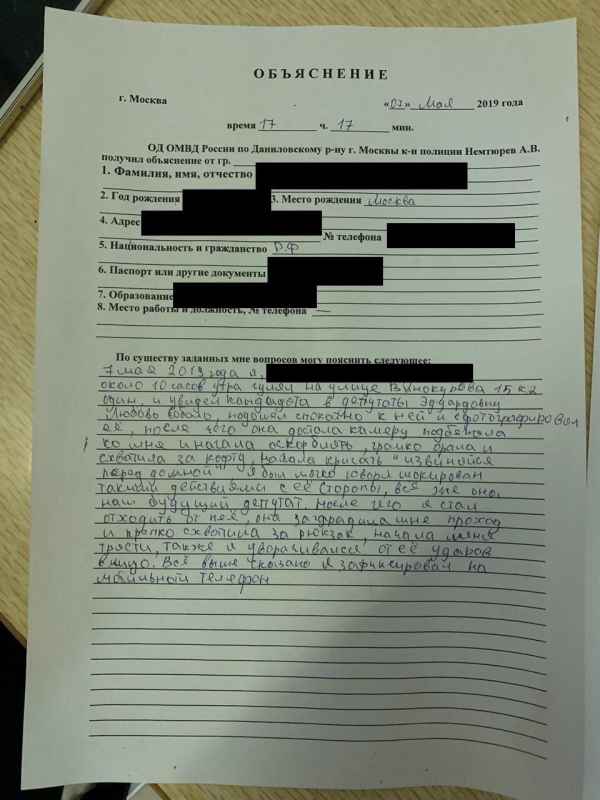 ОБЪЯСНЕНИЕ
г. Москва «07» Мая 2019 года
время 17 ч. 17 мин.
ОД ОМВД России по Даниловскому р-ну г. Москвы к-н полиции Немтюрев А.В.
получил объяснение от гр.
1. Фамилия, имя, отчество
2. Год рождения 3. Место рождения Москва
4. Адрес
№ телефона
5. Национальность и гражданство РФ
6. Паспорт или другие документы
7. Образование
8. Место работы и должность, № телефона —
По существу заданных мне вопросов могу пояснить следующее:
7 мая 2019 года я,
около 10 часов утра гулял на улице Винокурова 15 к2
один, и увидел кандидата в депутаты Эдуардовну
Любовь Соболь, подошел спокатно к ней и сфотографировал
её, после чего она достала камеру подбежала
ко мне и начала оскорблять, громко орала и
схватила за кофту, начала кричать "извинийся
перед домной" Я был мягко говоря шокирован
такими действиями с её стороны, всё же оно,
наш будущий депутат. после чего я стал
отходить от неё, она заградила мне проход
и крепко схватила за рюкзак, начала меня
трясти, также я уворачивался от её ударов
в лицо. Всё выше сказано я зафиксировал на
мобильный телефон